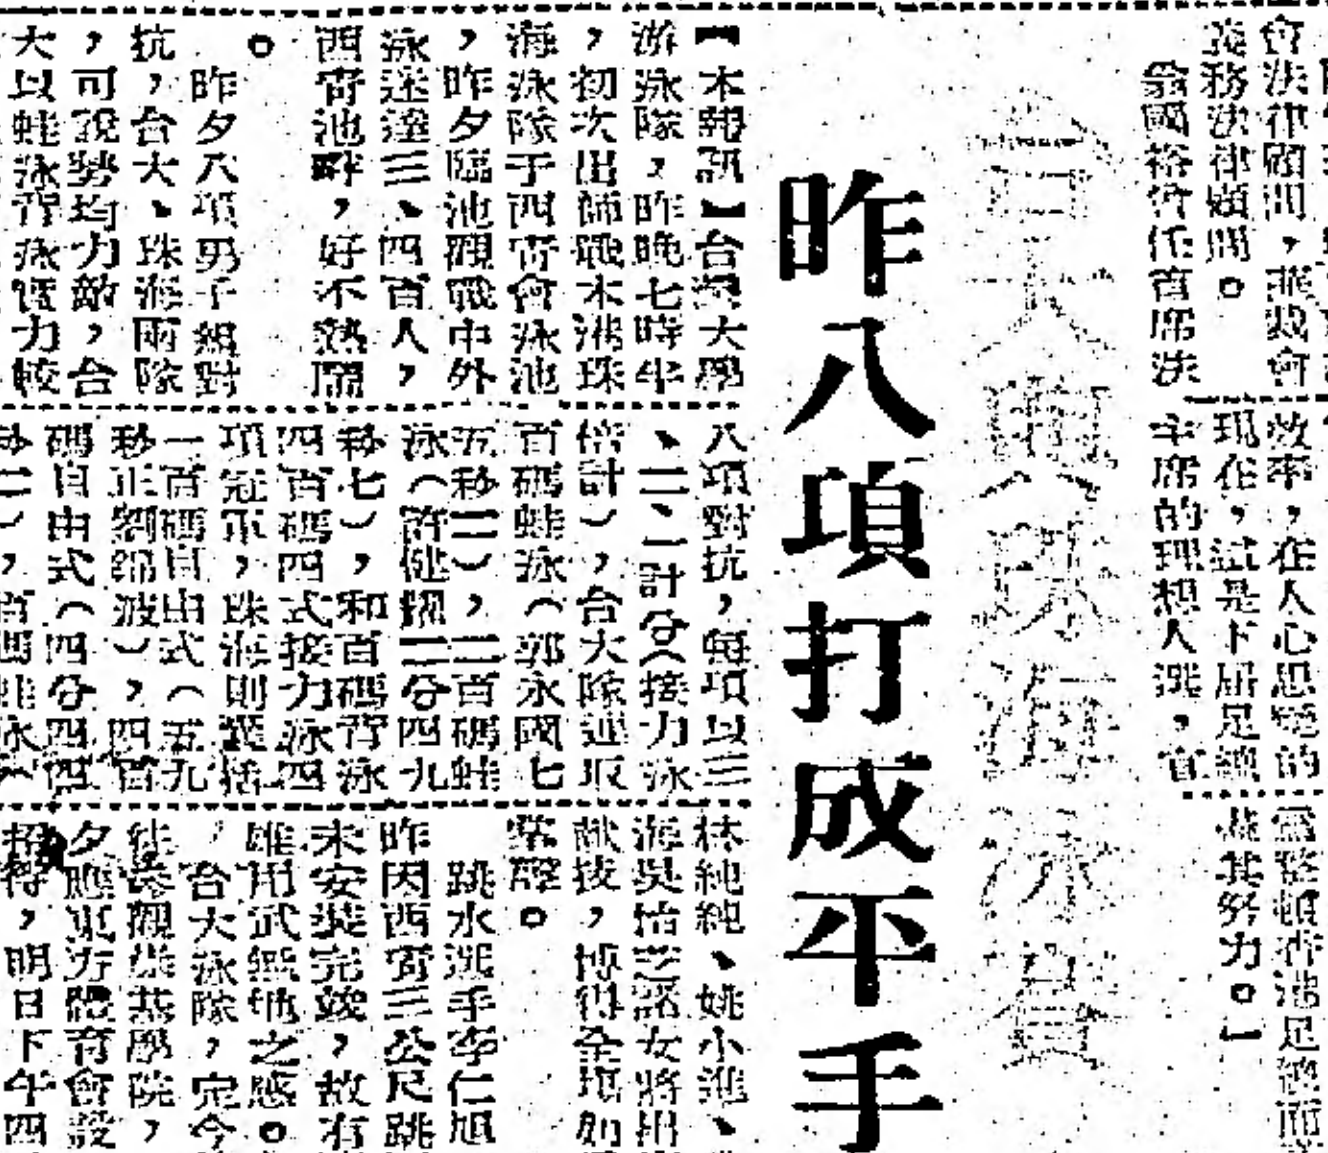 會法律顧問，兼裁會
義務法律顧問。
翁國裕督任首席法
效率，在人心思變的
現在，誠是下屆足總
主席的理想人選，官
需整頓香港足總而
盡其努力。】
台大與珠海泳賽
昨八項打成平手
【本報訊】台灣大學
游泳隊，昨晚七時半
，初次出師戰本港珠
海泳隊于西青會泳池
，昨夕臨池觀戰中外
泳迷達三、四百人，
西青池畔，好不熱鬧
。
昨夕八項男子組對
抗，台大、珠海兩隊
，可說勢均力敵，台
大以蛙泳背泳實力較
八項對抗，每項以三
、二、一計分（接力泳
倍計），台大隊連取
百碼蛙泳（郭永國七
五秒二），二百碼蛙
泳（許健 二分四九
秒七），和百碼背泳
四百碼四式接力泳四
項冠軍，珠海則囊括
一百碼自由式（五九
秒正劉錦波），四百
碼自由式（四分四四
秒二），百碼蛙泳（
林純純、姚小進、
海吳怡芝諾女將出
献技，博得全場如
掌聲。
跳水選手李仁旭
昨因西青三公尺跳
未安裝完竣，故有
雄用武無地之感。
台大泳隊，定今
往 觀崇基學院，
夕應東方體育會設
招待，明日下午四